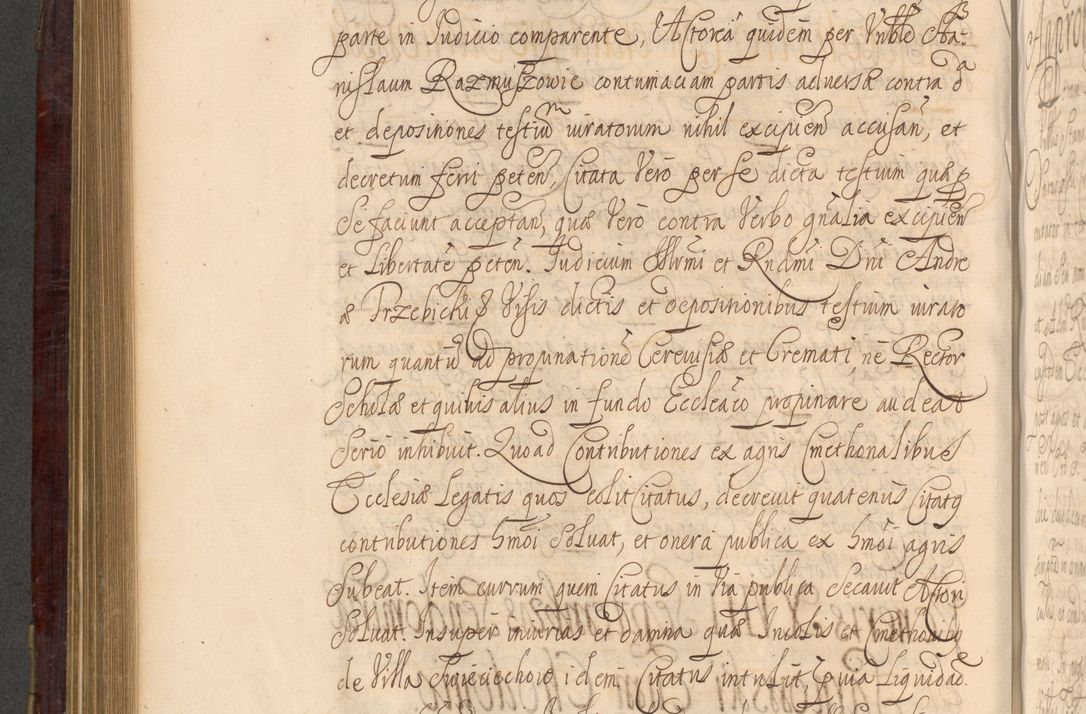 parte in Iudicio comparente, Actorea quidem per Nnble Sta:
nislaum Razmuszowic contumaciam partis adversæ contra d
et depositiones testiu iuratorum nihil excipien accusan, et
decretum ferri peten, Citata Vero per se dicta testium quæ p
se faciunt acceptan, quæ Vero contra Verbo gnalia excipien
et Libertate peten. Iudicium Illrmi et Rndmi Dni Andre
æ Trzebicki Visis dictis et depositionibus testium iurato
rum quantu ad propinatione Cerevisiæ et Cremati, ne Rector
Scholæ et quivis alius in fundo Eccleaco propinare audeat
Serio inhibuit. Quoad Contributiones ex agris Cmethonalibus
Ecclesiæ Legatis quos colit Citatus, decrevit quatenus Citatq
contributiones hmoi Soluat, et onera publica ex hmoi agris
Subeat. Item currum quem Citatus in Via publica Secavit Actori
Soluat. Insuper iniurias et damna quæ Incolis et Cmethonibq
de Villa idem Citatus intulit, quia Liquidad